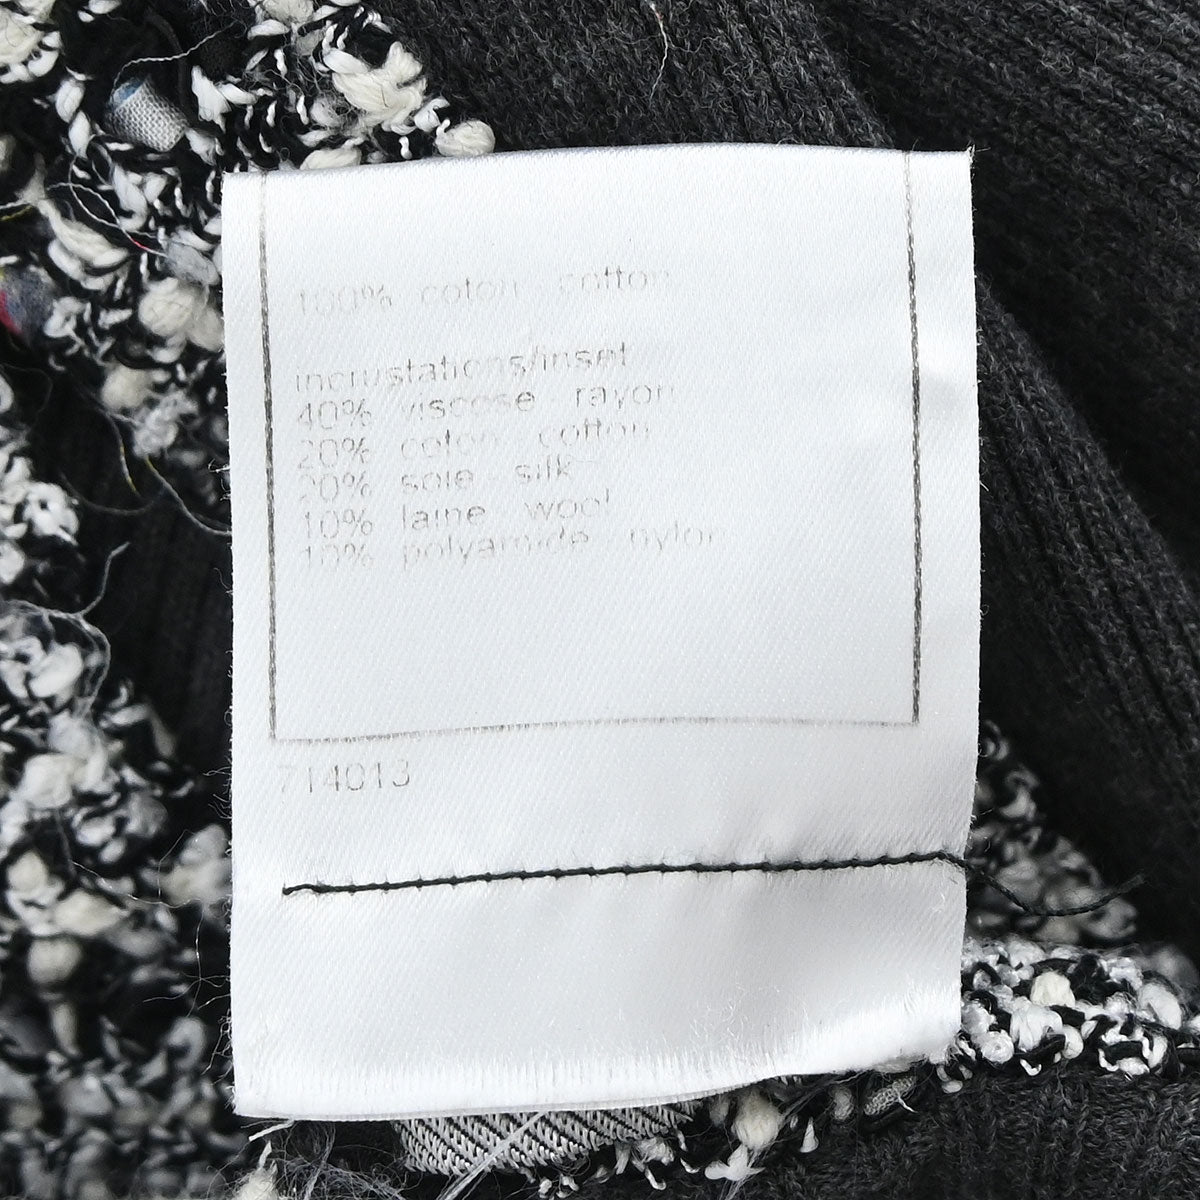 100% coton cotton
incrustations/inset
40% viscose rayon
20% coton cotton
20% soie silk
10% laine wool
10% polyamide nylon
714013